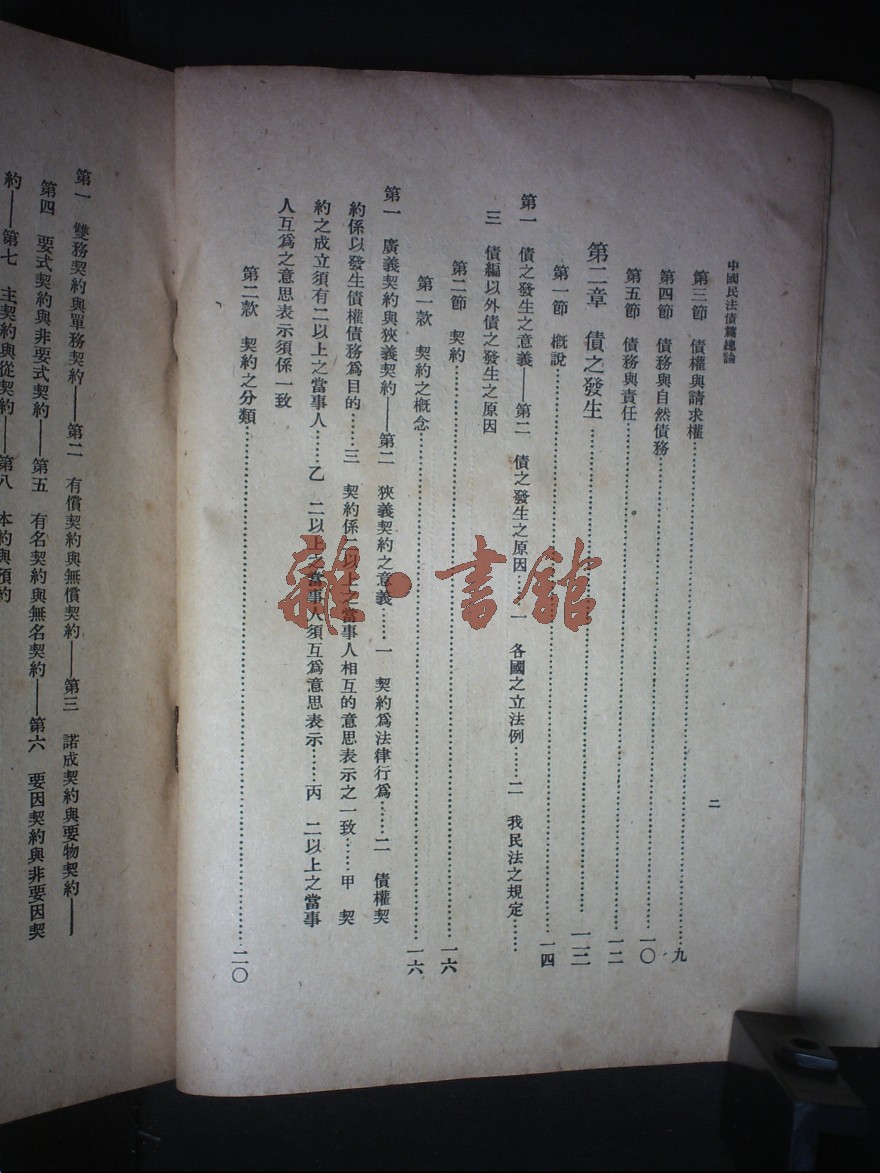 中國民法債篇總論
二
第三節 債權與請求權……九
第四節 債務與自然債務……一〇
第五節 債務與責任……一二
第二章 債之發生……一三
第一節 概說……一四
第一 債之發生之意義——第二 債之發生之原因 一 各國之立法例……二 我民法之規定……
三 債編以外債之發生之原因
第二節 契約……一六
第一款 契約之概念……一六
第一 廣義契約與狹義契約——第二 狹義契約之意義……一 契約爲法律行爲……二 債權契
約係以發生債權債務爲目的……三 契約係二以上之當事人相互的意思表示之一致……甲 契
約之成立須有二以上之當事人……乙 二以上之當事人須互爲意思表示……丙 二以上之當事
人互爲之意思表示須係一致
第二款 契約之分類……二〇
第一 雙務契約與單務契約——第二 有償契約與無償契約——第三 諾成契約與要物契約——
第四 要式契約與非要式契約——第五 有名契約與無名契約——第六 要因契約與非要因契
約——第七 主契約與從契約——第八 本約與預約
雜·書館